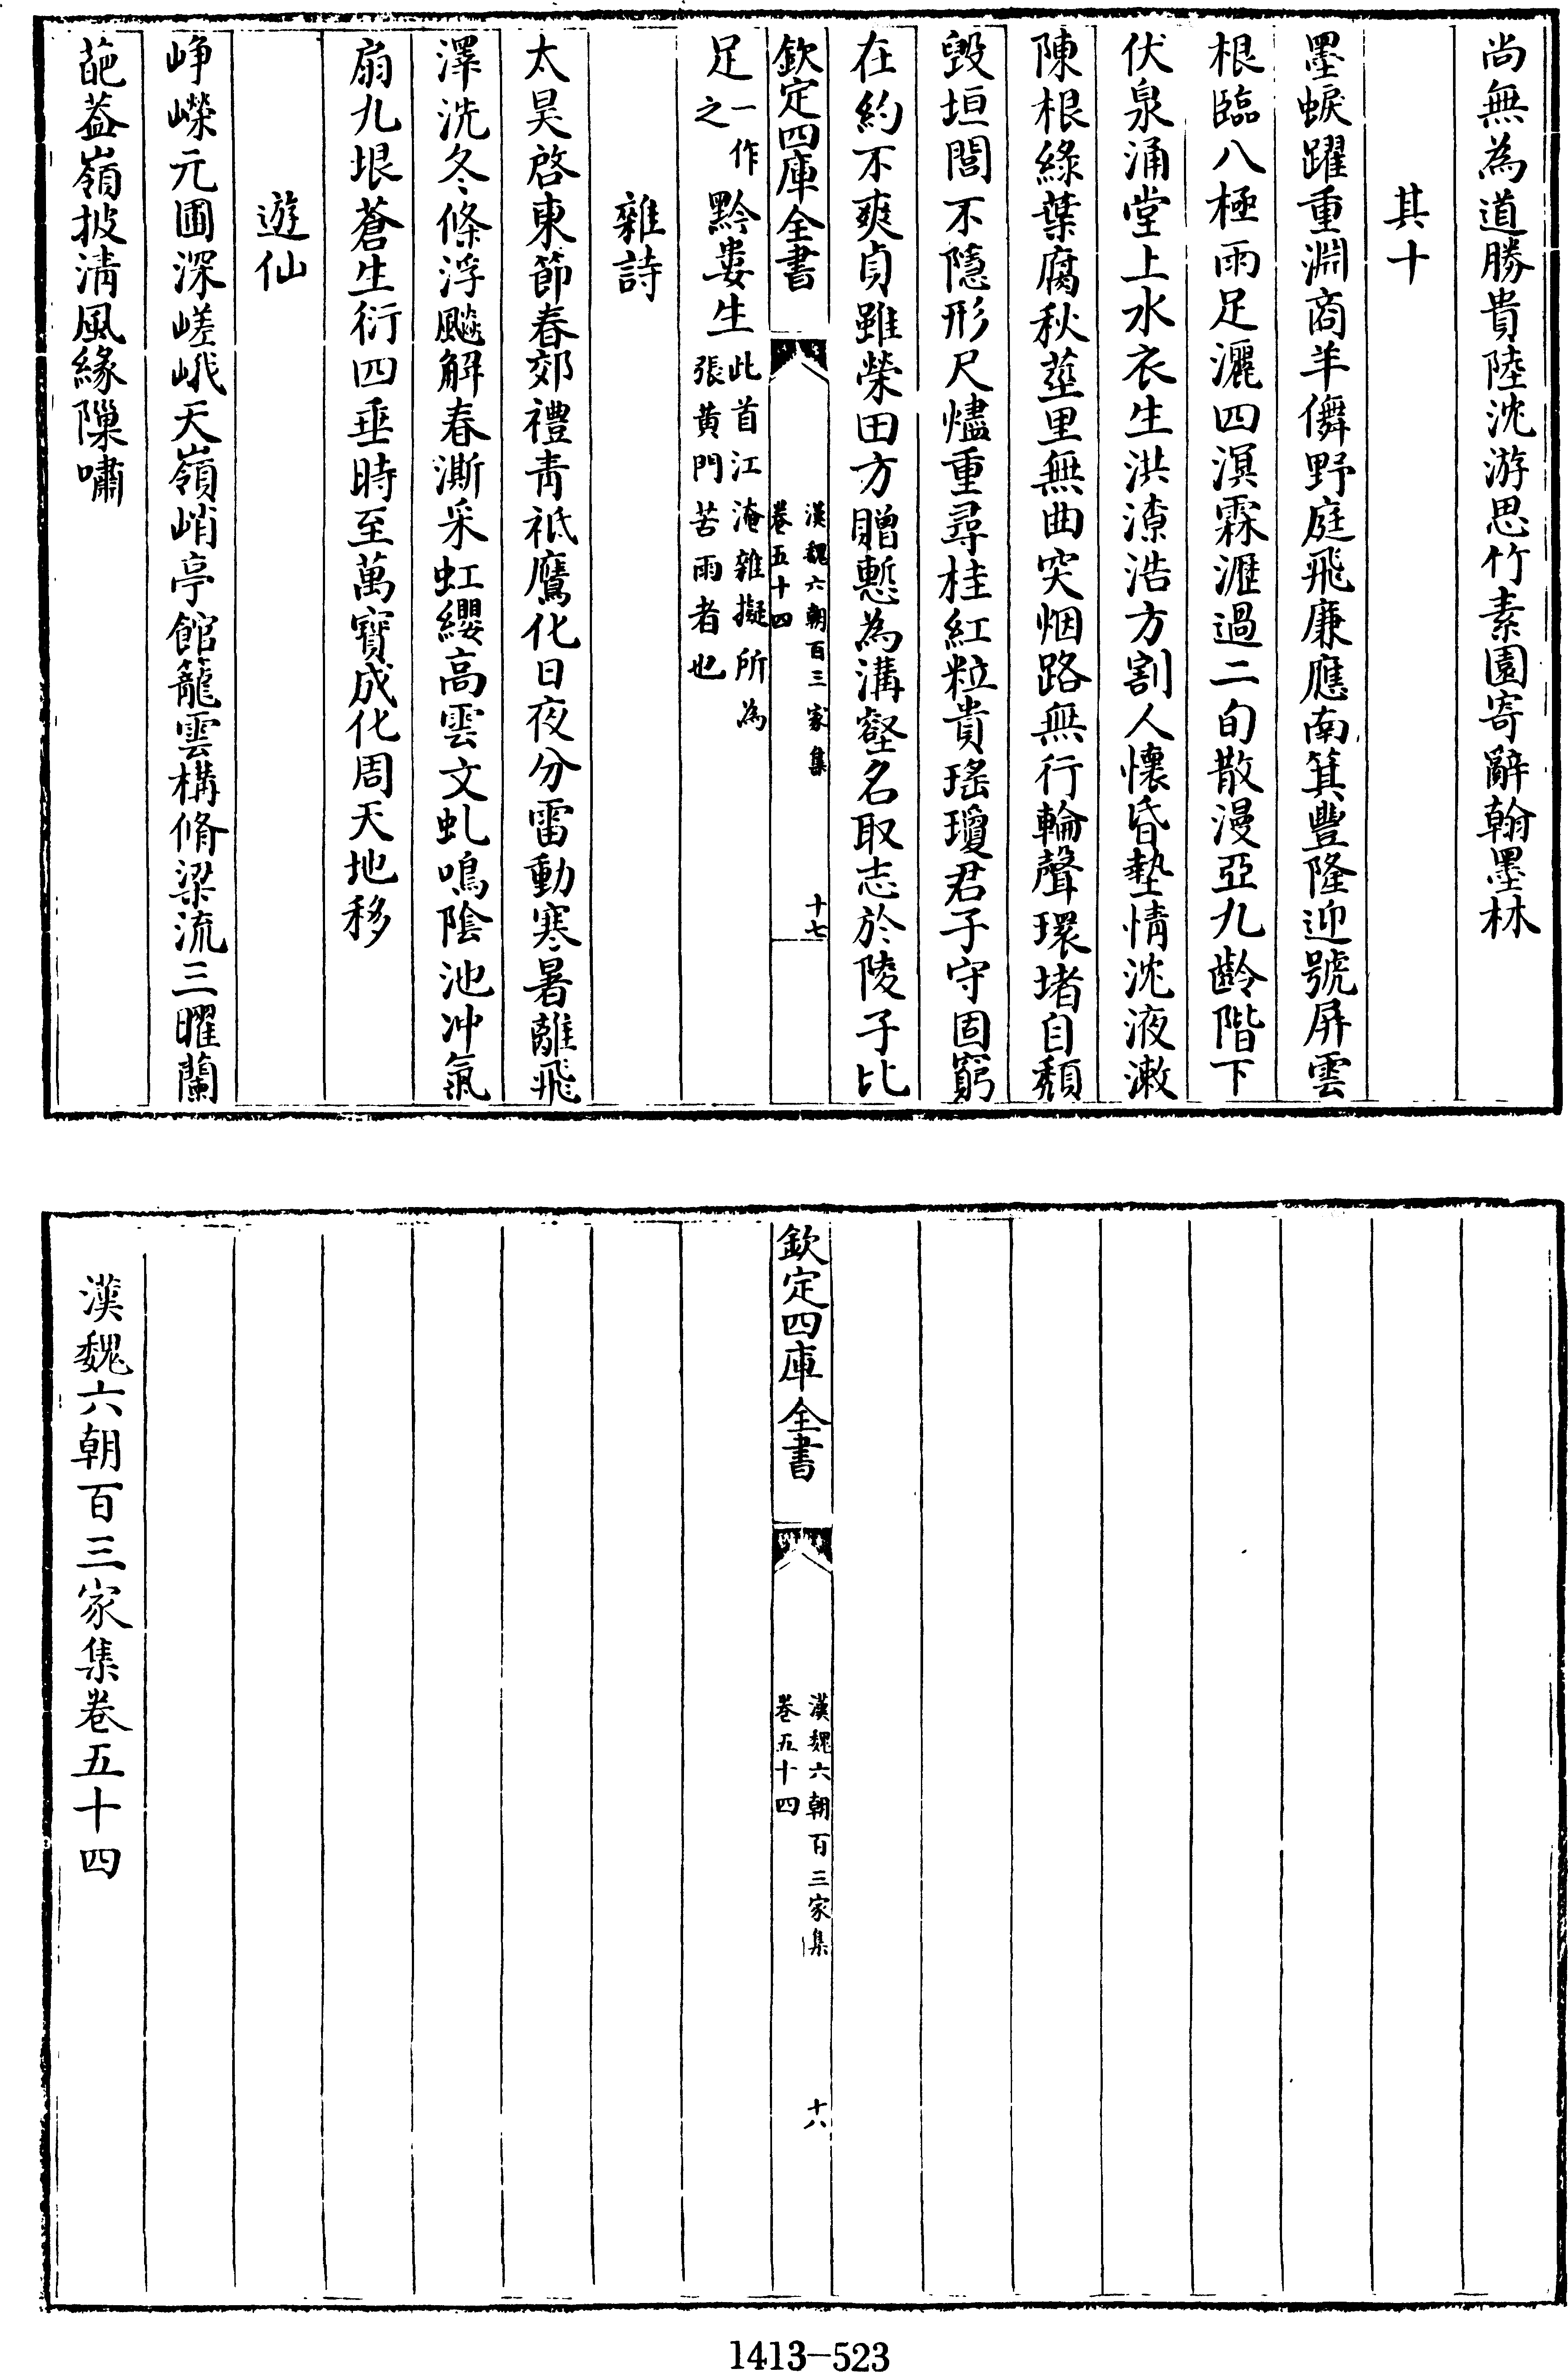 尚無為道勝貴陸沈游思竹素園寄辭翰墨林
其十
墨蜧躍重淵商羊儛野庭飛廉應南箕豐隆迎號屏雲
根臨八極雨足灑四溟霖瀝過二旬散漫亞九齡階下
伏泉涌堂上水衣生洪潦浩方割人懷昏墊情沈液漱
陳根綠葉腐秋莖里無曲突烟路無行輪聲環堵自頹
毀垣閭不隱形尺燼重尋桂紅粒貴瑤瓊君子守固窮
在約不爽貞雖榮田方贈慙為溝壑名取志於陵子比
欽定四庫全書
漢魏六朝百三家集
卷五十四
十七
足一作之黔婁生此首江淹雜擬所為張黄門苦雨者也
雜詩
太昊啓東節春郊禮青祗鷹化日夜分雷動寒暑離飛
澤洗冬條浮飇解春澌采虹纓高雲文虬鳴陰池冲氣
扇九垠蒼生衍四垂時至萬寶成化周天地移
遊仙
崢嶸元圃深嵯峨天嶺峭亭館籠雲構脩梁流三曜蘭
葩蓋嶺披清風緣隟嘯
欽定四庫全書
漢魏六朝百三家集
卷五十四
十八
漢魏六朝百三家集卷五十四
1413-523